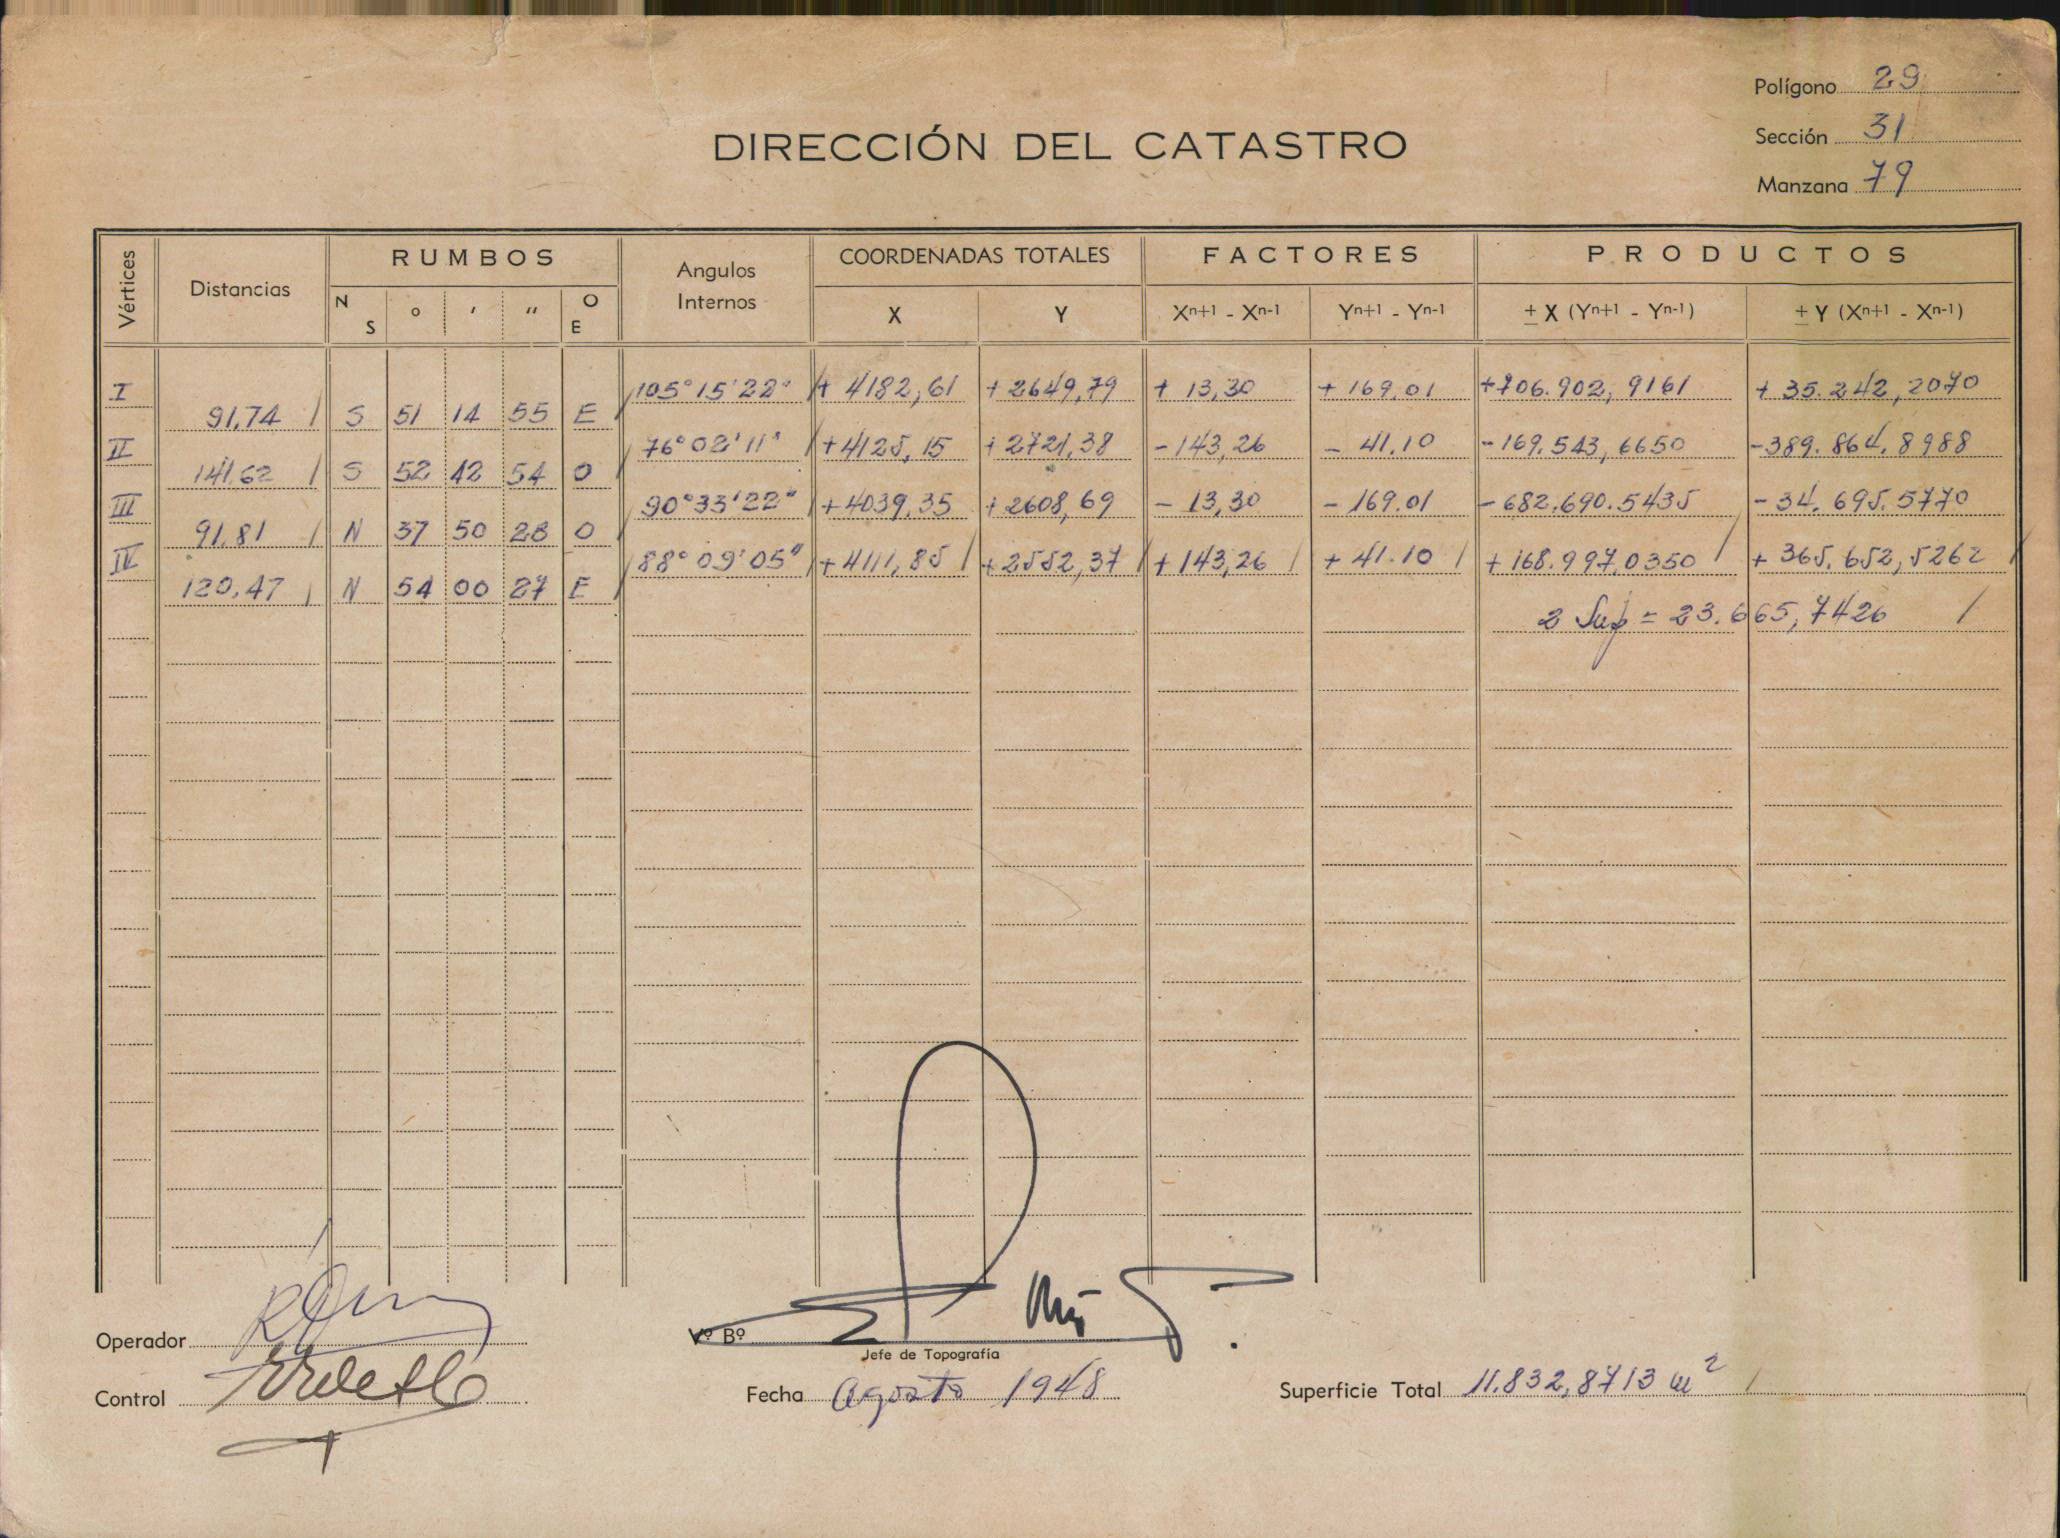 Polígono 29
DIRECCIÓN DEL CATASTRO
Sección 31
Manzana 79
Vértices Distancias RUMBOS Angulos Internos COORDENADAS TOTALES FACTORES PRODUCTOS
N S ° ' " O E X Y Xn+1 - Xn-1 Yn+1 - Yn-1 ± X (Yn+1 - Yn-1) ± Y (Xn+1 - Xn-1)
I 105°15'22" + 4182,61 + 2649,79 + 13,30 + 169.01 +706.902, 9161 + 35.242, 2070
91,74 S 51 14 55 E
II 76°02'11" +4125,15 +2721,38 -143,26 - 41.10 -169.543, 6650 -389.864.8988
141,62 S 52 42 54 O
III 90°33'22" +4039,35 +2608,69 - 13,30 - 169.01 - 682.690.5435 - 34.695.5770
91.81 N 37 50 28 O
IV 88°09'05" +4111,85 +2552,37 +143,26 + 41.10 + 168.997,0350 + 365.652,5262
120,47 N 54 00 27 E
2 Sup = 23.665,7426
Operador
Vº Bº
Jefe de Topografía
Control
Fecha Agosto 1948
Superficie Total 11.832,8713 m²